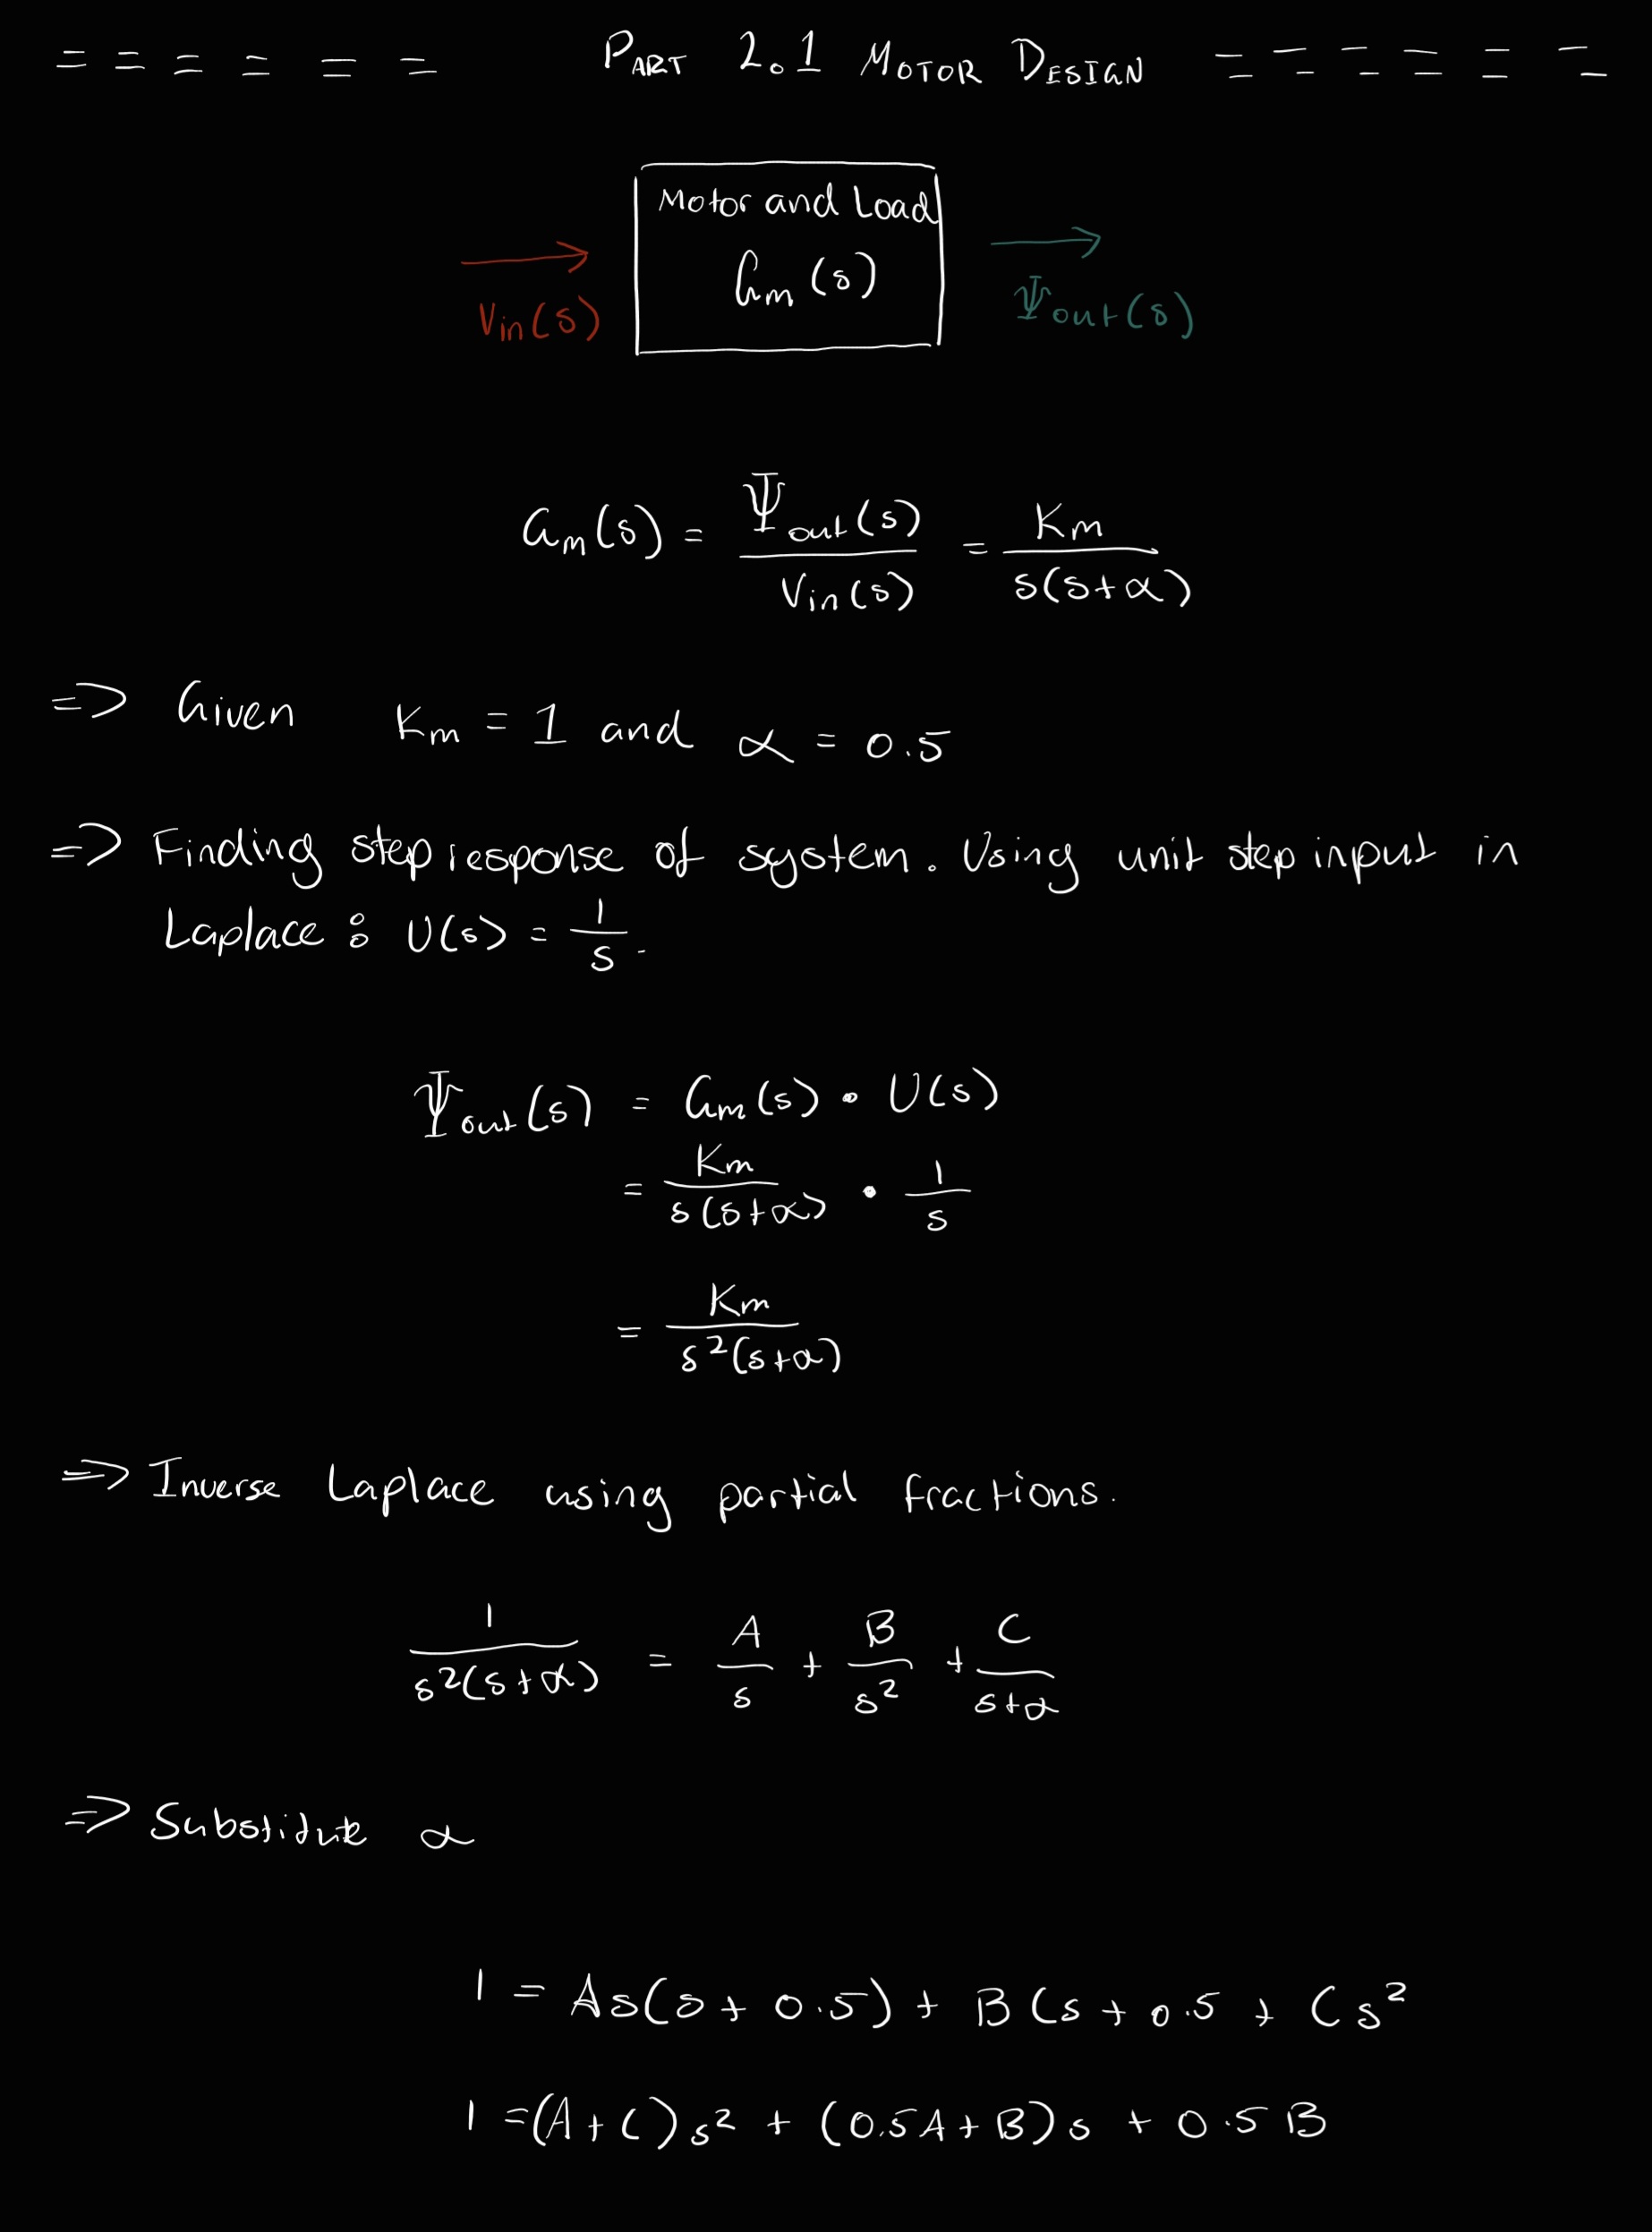 = = = = = = PART 2.1 MOTOR DESIGN = = = = = =
Motor and Load
Gm(s)
Vin(s)
Ψout(s)
Gm(s) = Ψout(s) / Vin(s) = Km / s(s+α)
=> Given Km = 1 and α = 0.5
=> Finding step response of system. Using unit step input in
Laplace : U(s) = 1/s.
Ψout(s) = Gm(s) • U(s)
= Km / s(s+α) • 1/s
= Km / s²(s+α)
=> Inverse Laplace using partial fractions.
1 / s²(s+α) = A/s + B/s² + C/s+α
=> Substitute α
1 = As(s + 0.5) + B(s + 0.5 + Cs²
1 = (A+C)s² + (0.5A+B)s + 0.5B